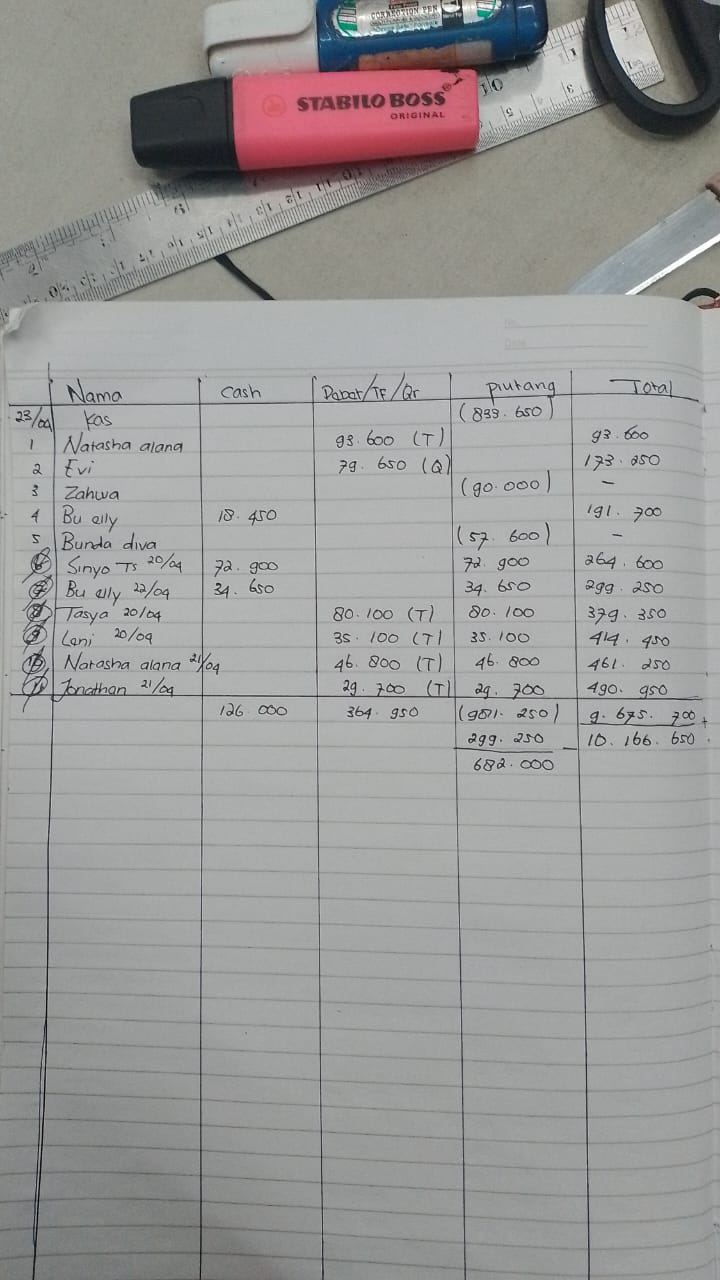 CORRECTION PEN
STABILO BOSS
ORIGINAL
No.
Date
Nama Cash Dabat/TF/Qr piutang Total
23/09 Kas (833.650)
1 Natasha alana 93.600 (T) 93.600
2 Evi 79.650 (Q) 173.250
3 Zahwa (90.000) -
4 Bu elly 18.450 191.700
5 Bunda diva (57.600) -
6 Sinyo Ts 20/09 72.900 72.900 264.600
7 Bu elly 22/09 34.650 34.650 299.250
8 Tasya 20/09 80.100 (T) 80.100 379.350
9 Leni 20/09 35.100 (T) 35.100 414.450
10 Natasha alana 21/09 46.800 (T) 46.800 461.250
11 Jonathan 21/09 29.700 (T) 29.700 490.950
126.000 364.950 (981.250) 9.675.700 +
299.250 - 10.166.650
682.000